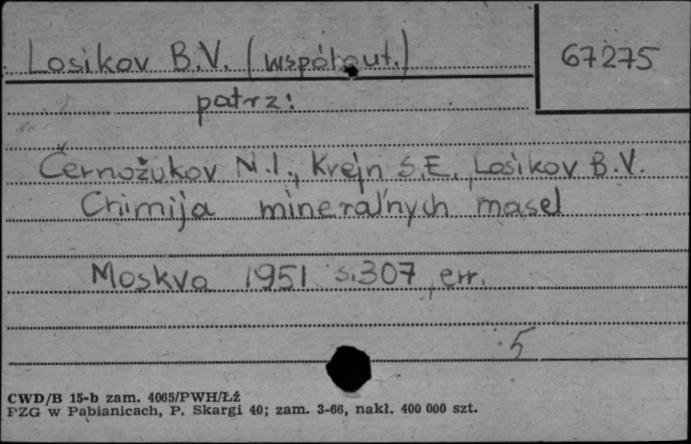 Losikov B.V. (współaut.)
67275
patrz:
Černožukov N.I., Krejn S.E., Losikov B.V.
Chimija mineral'nych masel
Moskva 1951 s.307, err.
5
CWD/B 15-b zam. 4065/PWH/Łź
PZG w Pabianicach, P. Skargi 40; zam. 3-66, nakł. 400 000 szt.